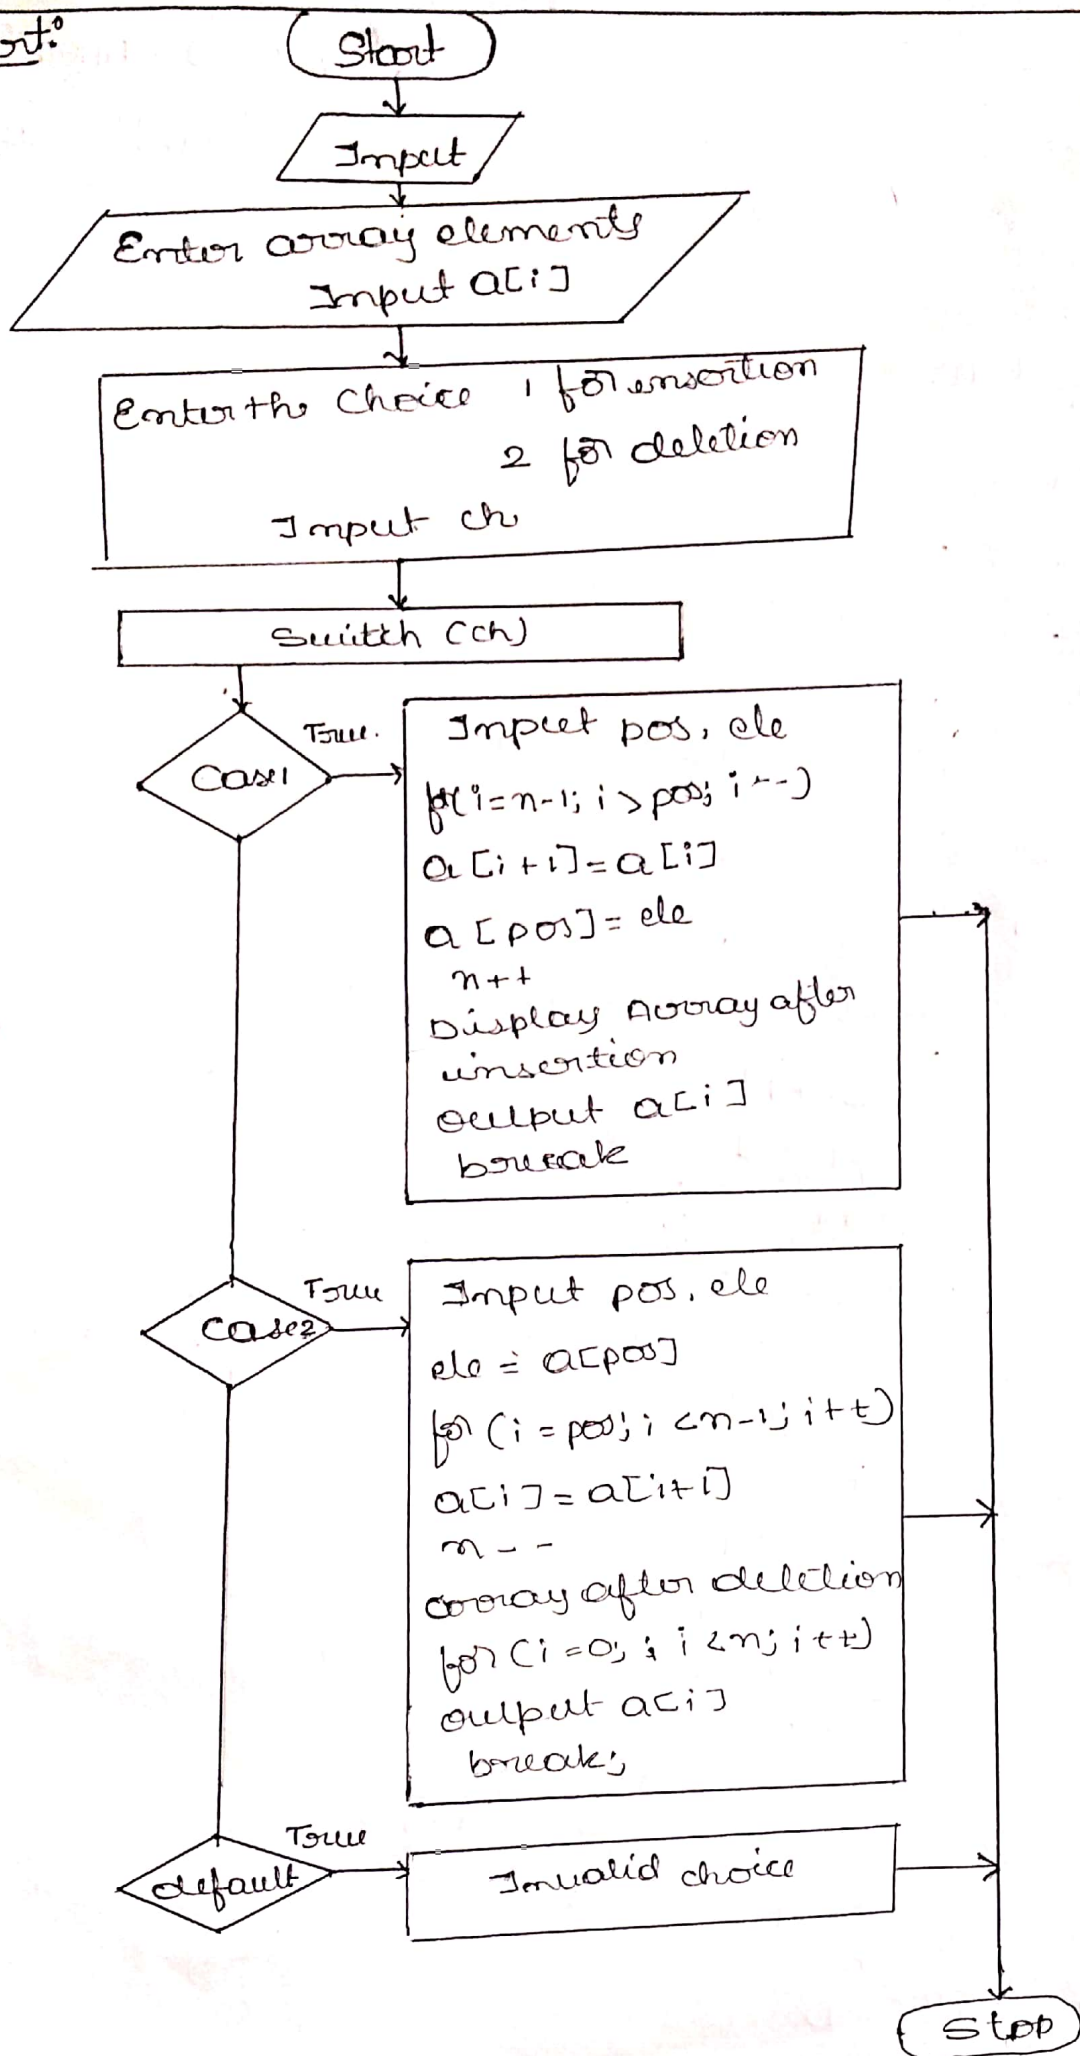 ort:
Start
Input
Enter array elements
Input a[i]
Enter the Choice 1 for insertion
2 for deletion
Input ch
Switch (ch)
Case1
True.
Input pos, ele
for(i=n-1; i>pos; i--)
a[i+1]=a[i]
a[pos]=ele
n++
Display Array after
insertion
output a[i]
break
Case2
True
Input pos, ele
ele = a[pos]
for (i=pos; i<n-1; i++)
a[i]=a[i+1]
n--
array after deletion
for (i=0; i<n; i++)
output a[i]
break;
default
True
Invalid choice
Stop